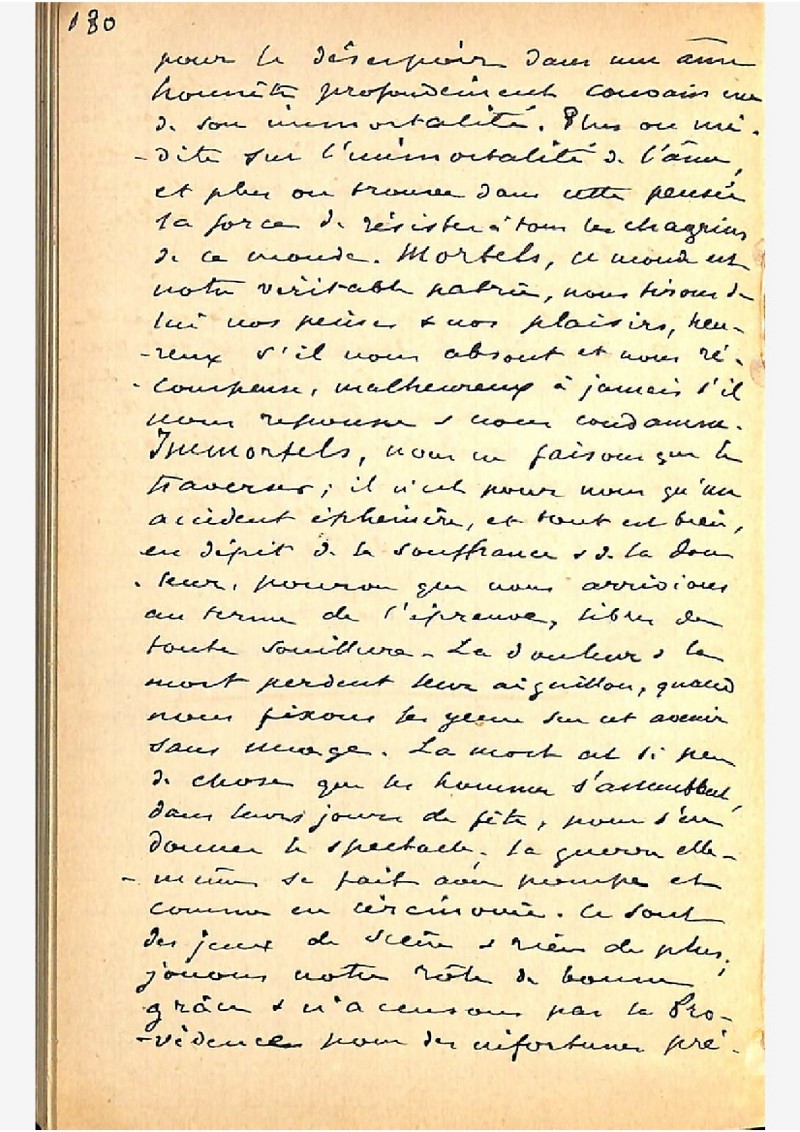 180
pour le désespoir dans une âme
honnête profondément convaincue
de son immortalité. Plus on mé-
-dite sur l'immortalité de l'âme,
et plus on trouve dans cette pensée
la force de résister à tous les chagrins
de ce monde. Mortels, ce monde est
notre véritable patrie, nous tirons de
lui nos peines & nos plaisirs, heu-
-reux s'il nous absout et nous ré-
-compense, malheureux à jamais s'il
nous repousse & nous condamne.
Immortels, nous ne faisons que le
traverser; il n'est pour nous qu'un
accident éphémère, et tout est bien,
en dépit de la souffrance & de la dou
-leur, pourvu que nous arrivions
au terme de l'épreuve, libres de
toute souillure - La douleur & la
mort perdent leur aiguillon, quand
nous fixons les yeux sur cet avenir
sans nuage. La mort est si peu
de chose que les hommes s'assemblent,
dans leurs jours de fête, pour s'en
donner le spectacle. La guerre elle-
-même se fait avec pompe et
comme en cérémonie. Ce sont
des jeux de scène & rien de plus;
jouons notre rôle de bonne
grâce & n'accusons pas la Pro-
-vidence pour des infortunes pré-